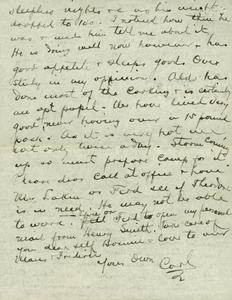 sleepless nights & c as his weight
dropped to 120. I noticed how thin he
was & made him tell me about it.
He is doing well now however & has
good appetite & sleeps good. Over
study in my opinion. Ald has
done most of the cooking & is certainly
an apt pupil. We have lived very
good, never having over a 15 pound
pack. As it is very hot we
eat only twice a day. Storm coming
up so must prepare camp for it.
Please dear call at office & have
Mrs. or Ford see if
is in need. He may not be able
to work. Tell Ford to open my personal
mail from Henry Smith. Take care of
you dear self & love to our
& Frederic
Your Own Carl